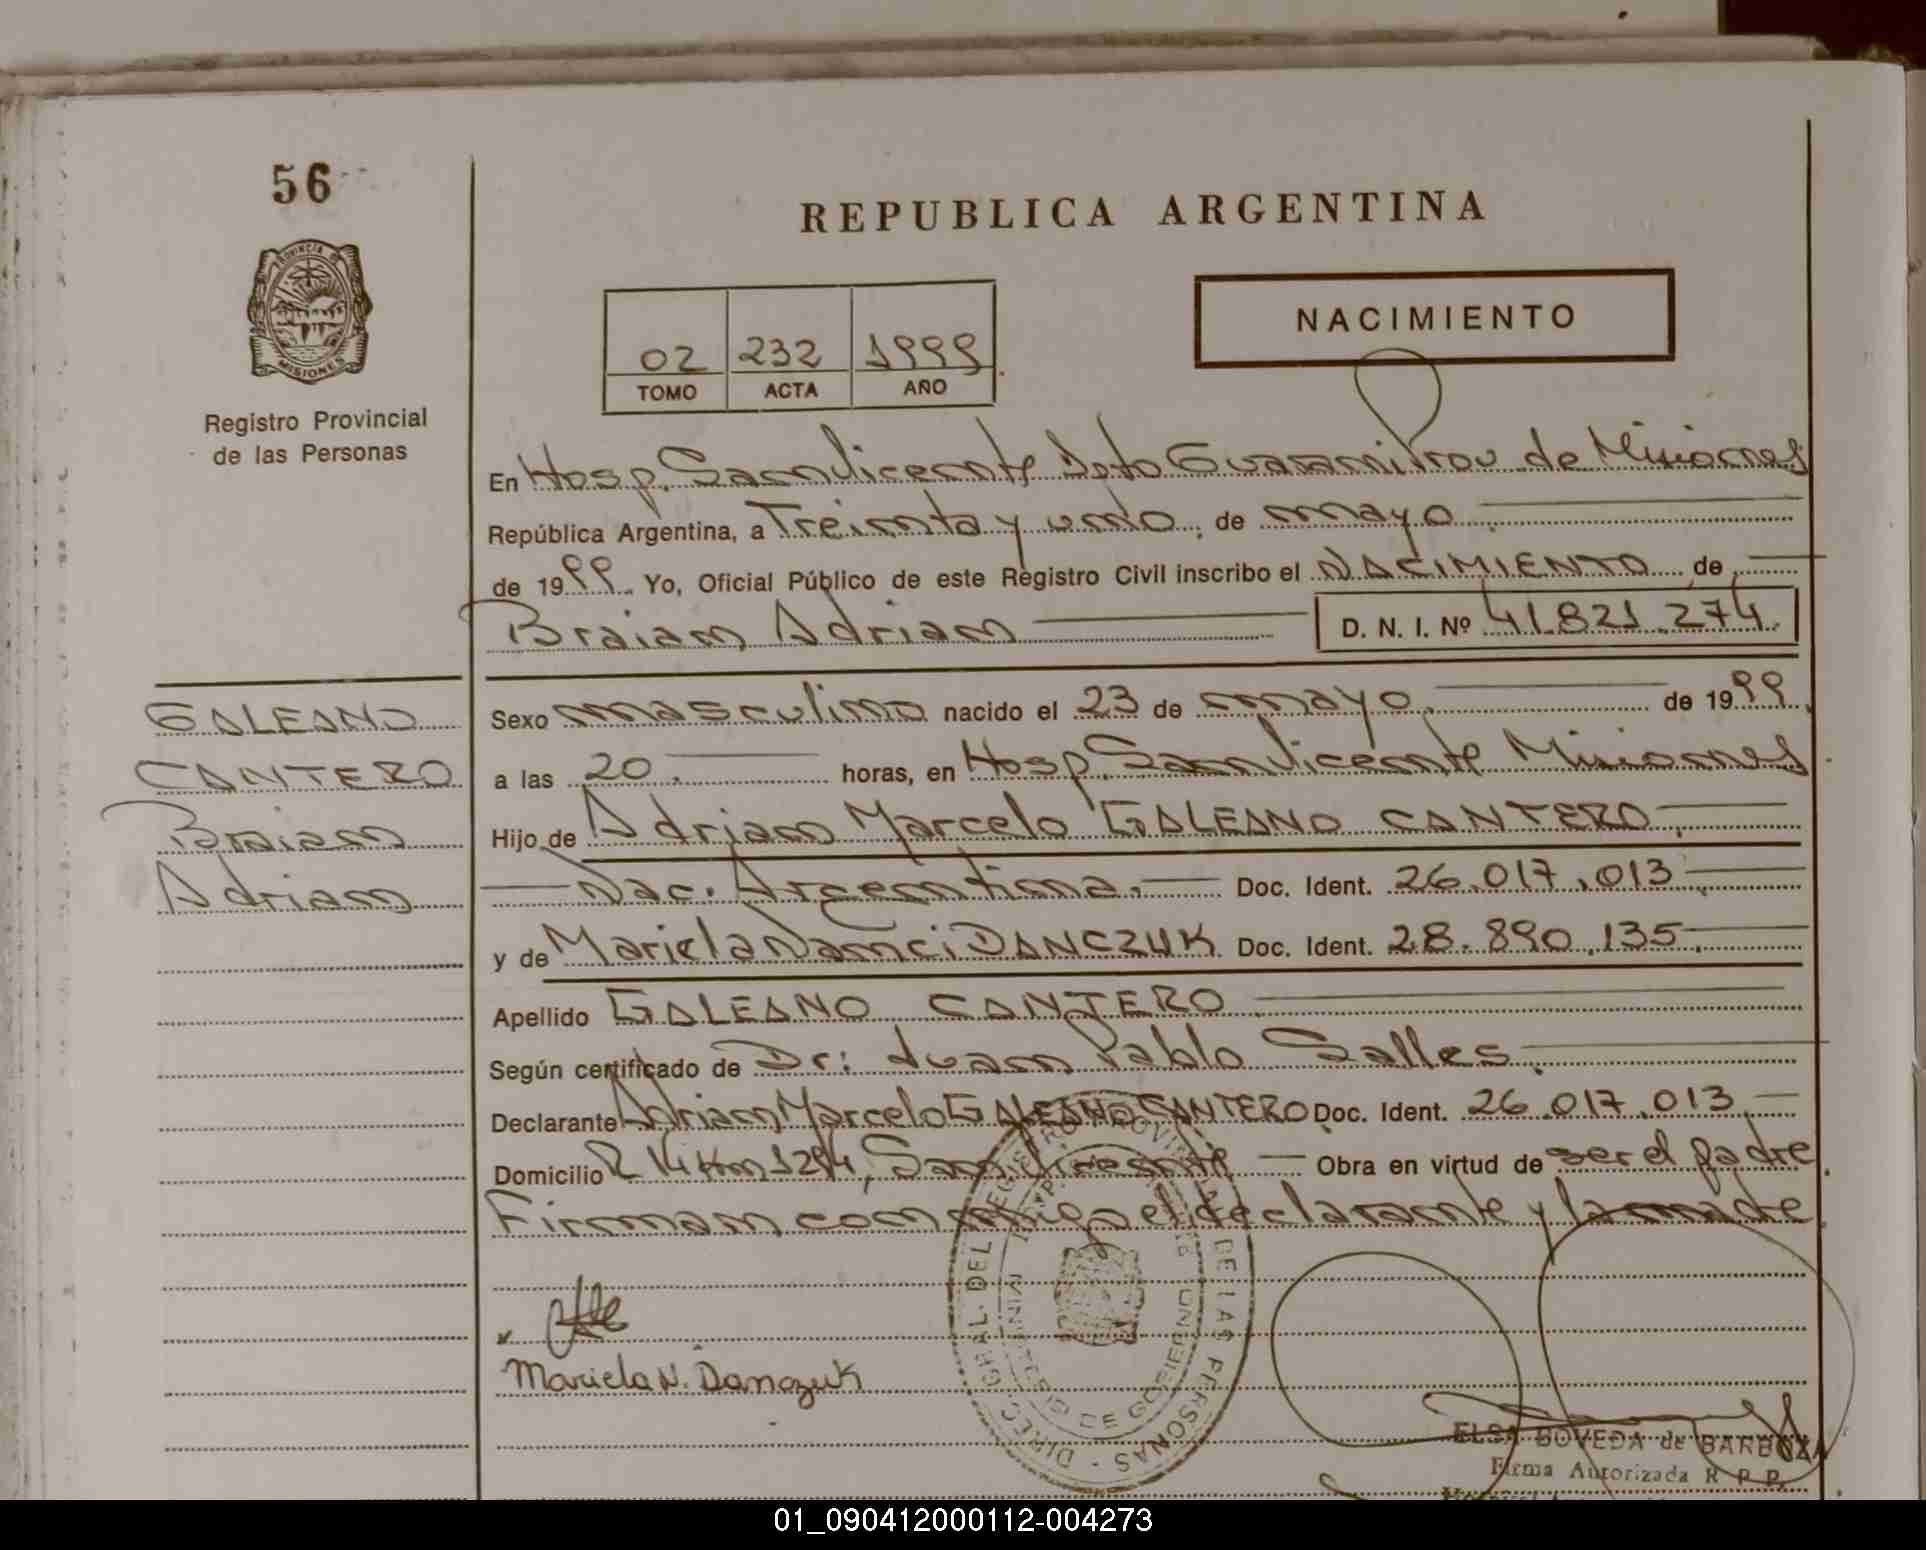 56
PROVINCIA DE
MISIONES
Registro Provincial
de las Personas
REPUBLICA ARGENTINA
02 232 1999
TOMO ACTA AÑO
NACIMIENTO
En Hosp. San Vicente Dpto Guaraní Prov de Misiones
República Argentina, a Treinta y uno, de mayo
de 1999. Yo, Oficial Público de este Registro Civil inscribo el NACIMIENTO de
Braian Adrian D. N. I. Nº 41.821.274
GALEANO
CANTERO
Braian
Adrian
Sexo masculino nacido el 23 de mayo de 1999
a las 20. horas, en Hosp. San Vicente Misiones
Hijo de Adrian Marcelo GALEANO CANTERO
Nac. Argentina. Doc. Ident. 26.017.013
y de Mariela Nanci DANCZUK Doc. Ident. 28.890.135
Apellido GALEANO CANTERO
Según certificado de Dr: Juan Pablo Salles
Declarante Adrian Marcelo GALEANO CANTERO Doc. Ident. 26.017.013
Domicilio R 14 Km 1294, San Vicente Obra en virtud de ser el padre
Firman conmigo el declarante y la madre
DIREC. GRAL. DEL REGISTRO PROVINCIAL DE LAS PERSONAS
MINISTERIO DE GOBIERNO
Mariela N. Danczuk
ELSA BOVEDA de BARBOZA
Firma Autorizada R. P. P.
01_090412000112-004273